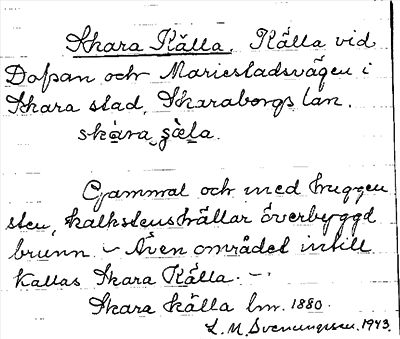 Skara Källa. Källa vid
Dofsan och Mariestadsvägen i
Skara stad, Skaraborgs län.
skàra sèla.
Gammal och med huggen
sten, kalkstenshällar överbyggd
brunn. – Även området intill
kallas Skara Källa. –
Skara källa lm. 1880.
L. M. Svenungsson. 1943.